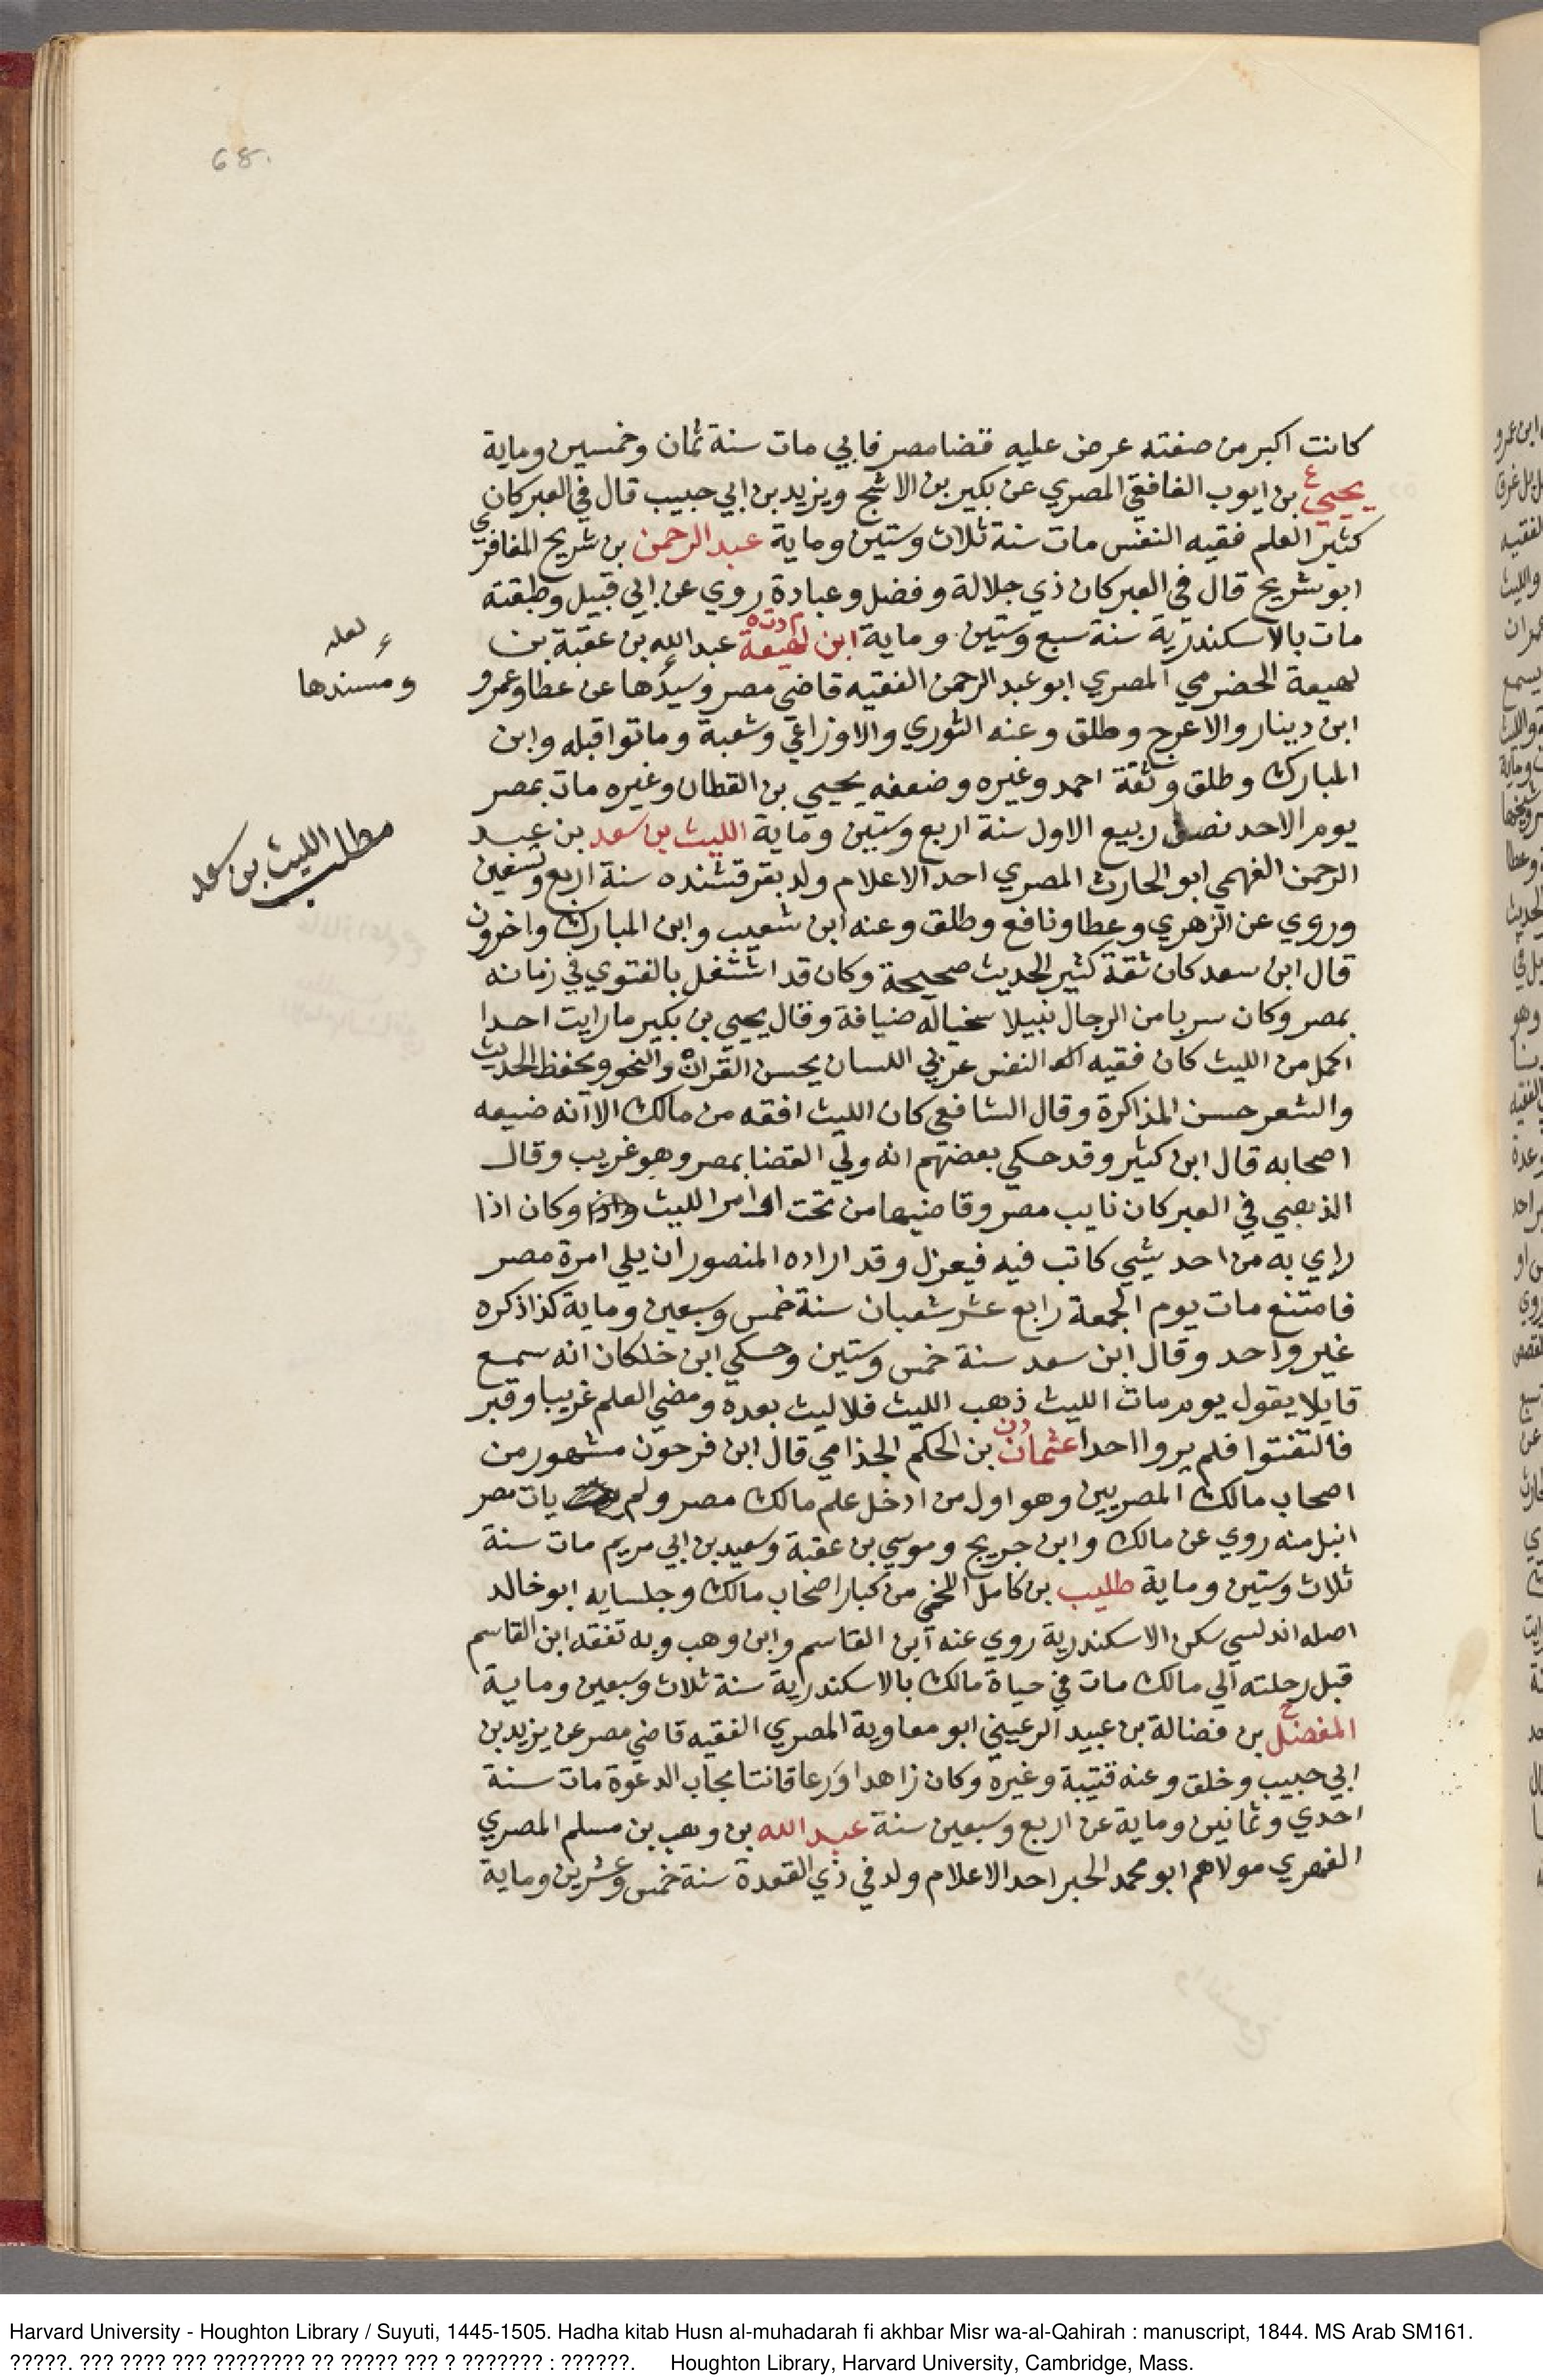 68.
كانت اكبر من صفته عرض عليه قضا مصر فابي مات سنة ثمان وخمسين وماية
يحيي ع بن ايوب الغافقي المصري عن بكير بن الاشج ويزيد بن ابي حبيب قال في العبر كان
كثير العلم فقيه النفس مات سنة ثلاث وستين وماية عبد الرحمن بن شريح المغافري
ابو شريح قال في العبر كان ذي جلالة وفضل وعبادة روي عن ابي قبيل وطبقته
مات بالاسكندرية سنة سبع وستين وماية ابن لهيعة م د ت ه عبد الله بن عقبة بن
لهيعة الحضرمي المصري ابو عبد الرحمن الفقيه قاضي مصر وسيدها عن عطا وعمرو
لعله
ومسندها
ابن دينار والاعرج وطلق وعنه الثوري والاوزاعي وشعبة وماتوا قبله وابن
المبارك وطلق وثقة احمد وغيره وضعفه يحيي بن القطان وغيره مات بمصر
يوم الاحد نصف ربيع الاول سنة اربع وستين وماية الليث بن سعد بن عبد
مطلب الليث بن سعد
الرحمن الفهمي ابو الحارث المصري احد الاعلام ولد بقرقشنده سنة اربع وتسعين
وروي عن الزهري وعطا ونافع وطلق وعنه ابن شعيب وابن المبارك واخرون
قال ابن سعد كان ثقة كثير الحديث صحيحة وكان قد اشتغل بالفتوي في زمانه
بمصر وكان سريا من الرجال نبيلا سخيا له ضيافة وقال يحيي بن بكير ما رايت احدا
اكمل من الليث كان فقيه النفس عربي اللسان يحسن القران والنحو ويحفظ الحديث
والشعر حسن المذاكرة وقال الشافعي كان الليث افقه من مالك الا انه ضيعه
اصحابه قال ابن كثير وقد حكي بعضهم انه ولي القضا بمصر وهو غريب وقال
الذهبي في العبر كان نايب مصر وقاضيها من تحت اوامر الليث وكان اذا
راي به من احد شيي كاتب فيه فيعزل وقد اراده المنصور ان يلي امرة مصر
فامتنع مات يوم الجمعة رابع عشر شعبان سنة خمس وسبعين وماية كذا ذكره
غير واحد وقال ابن سعد سنة خمس وستين وحكي ابن خلكان انه سمع
قايلا يقول يوم مات الليث ذهب الليث فلا ليث بعده ومضي العلم غريبا وقبر
فالتفتوا فلم يروا احدا عثمان د ن بن الحكم الجذامي قال ابن فرحون مشهور من
اصحاب مالك المصريين وهو اول من ادخل علم مالك مصر ولم يات مصر
انبل منه روي عن مالك وابن جريج وموسي بن عقبة وسعيد بن ابي مريم مات سنة
ثلاث وستين وماية طليب بن كامل اللخمي من كبار اصحاب مالك وجلسايه ابو خالد
اصله اندلسي سكن الاسكندرية روي عنه ابن القاسم وابن وهب وبه تفقه ابن القاسم
قبل رحلته الي مالك مات في حياة مالك بالاسكندرية سنة ثلاث وسبعين وماية
المفضل ع بن فضالة بن عبيد الرعيني ابو معاوية المصري الفقيه قاضي مصر عن يزيد بن
ابي حبيب وخلق وعنه قتيبة وغيره وكان زاهدا ورعا قانتا مجاب الدعوة مات سنة
احدي وثمانين وماية عن اربع وسبعين سنة عبد الله بن وهب بن مسلم المصري
الفهري مولاهم ابو محمد الحبر احد الاعلام ولد في ذي القعدة سنة خمس وعشرين وماية
Harvard University - Houghton Library / Suyuti, 1445-1505. Hadha kitab Husn al-muhadarah fi akhbar Misr wa-al-Qahirah : manuscript, 1844. MS Arab SM161.
?????. ??? ???? ??? ???????? ?? ????? ??? ? ??????? : ??????. Houghton Library, Harvard University, Cambridge, Mass.